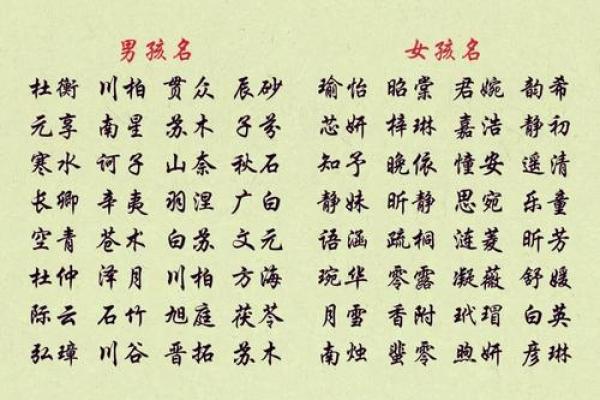 男孩名 女孩名
杜衡 川柏 贯众 辰砂 瑜怡 昭棠 君婉 韵希
元享 南星 苏木 子芬 芯妍 梓琳 嘉浩 静初
寒水 诃子 山奈 秋石 知予 晚依 憧安 遥清
长卿 辛夷 羽涅 广白 静姝 昕静 思宛 乐童
空青 苍术 白苏 文元 语涵 疏桐 涟菱 昕芳
杜仲 泽月 川柏 方海 琬华 零露 凝薇 舒媛
际云 石竹 旭庭 茯苓 月雪 香附 玳瑁 白英
弘璋 川谷 晋拓 苏木 南烛 蜚零 煦妍 彦琳